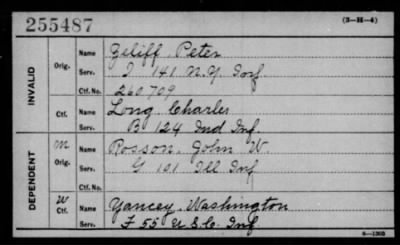 255487 (3-H-4)
INVALID
Orig. Name Zeliff, Peter
Serv. I 141 N.Y. Inf.
Ctf. No. 260,709
Ctf. Name Long, Charles
Serv. B 124 Ind Inf.
DEPENDENT
M Orig. Name Rosson, John W.
Serv. G 101 Ill Inf
Ctf. No.
W Ctf. Name Yancey, Washington
Serv. F 55 U.S.C. Inf.